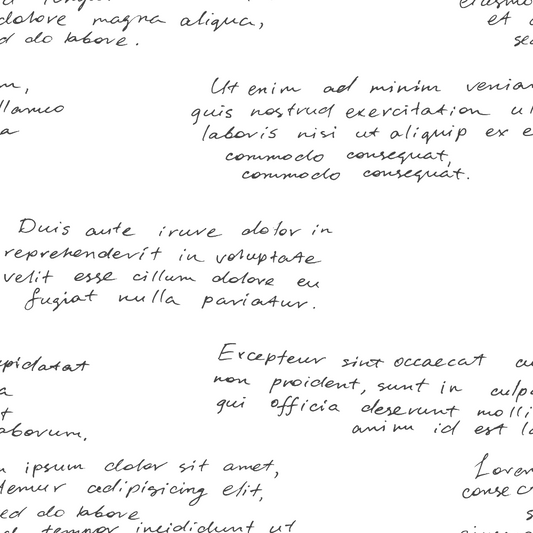 dolore magna aliqua,
d do labore.
eiusmo
et
se
m,
llamco
a
Ut enim ad minim venia
quis nostrud exercitation u
laboris nisi ut aliquip ex e
commodo consequat,
commodo consequat.
Duis aute irure dolor in
reprehenderit in voluptate
velit esse cillum dolore eu
fugiat nulla pariatur.
pidatat
a
t
aborum.
Excepteur sint occaecat cu
non proident, sunt in culpa
qui officia deserunt molli
animi id est la
ipsum dolor sit amet,
temur adipisicing elit,
ed do labore
tempor incididunt ut
Lorem
consec
s